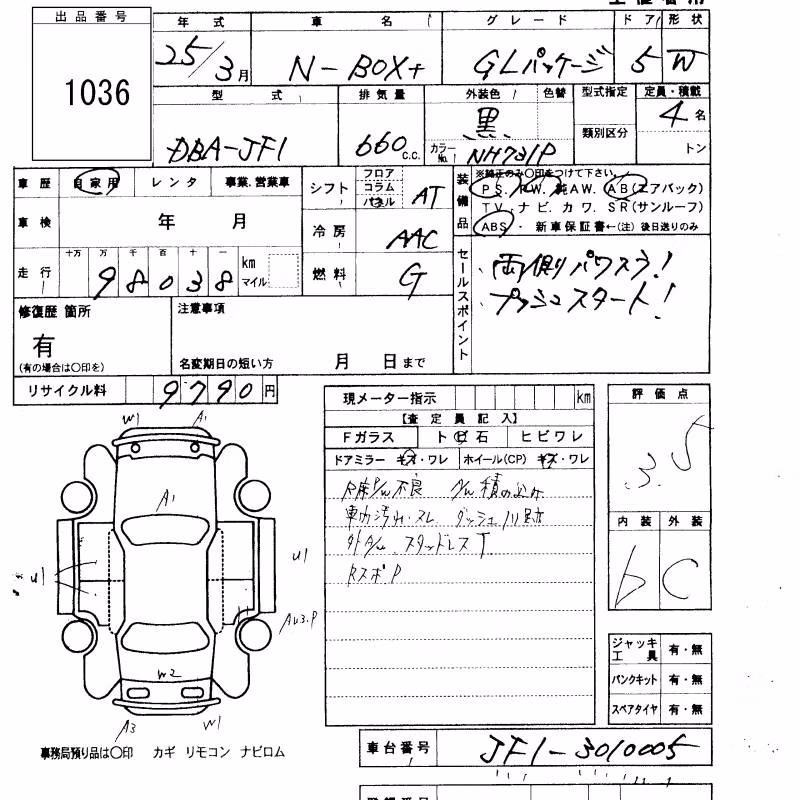 出品番号
1036
年式 車名 グレード ドア 形状
25/3月 N-BOX+ GLパッケージ 5 W
型式 排気量 外装色 色替 型式指定 定員・積載
DBA-JF1 660 c.c. 黒 4名
カラーNo. NH731P 類別区分 トン
車歴 自家用 レンタ 事業.営業車
シフト フロア コラム パネル AT
装備品 ※純正のみ○印をつけて下さい。
PS. PW. 純AW. AB(エアバック)
TV. ナビ. カワ. SR(サンルーフ)
ABS・ 新車保証書←(注) 後日送りのみ
車検 年 月
冷房 AAC
走行 十万 万 千 百 十 一
98038 km マイル
燃料 G
セールスポイント
両側パワスラ!
プッシュスタート!
修復歴 箇所
有
(有の場合は○印を)
注意事項
名変期日の短い方 月 日まで
リサイクル料 9790円
現メーター指示 km
【査定員記入】
Fガラス トビ石 ヒビワレ
ドアミラー キズ・ワレ ホイール(CP) キズ・ワレ
不良
車内汚れ・スレ
スタッドレス
RスポP
評価点
3.5
内装 外装
b C
ジャッキ工具 有・無
パンクキット 有・無
スペアタイヤ 有・無
W1 A1
A1
U1 U1
AU3.P
W2
A3 W1
事務局預り品は○印 カギ リモコン ナビロム
車台番号 JF1-3010005